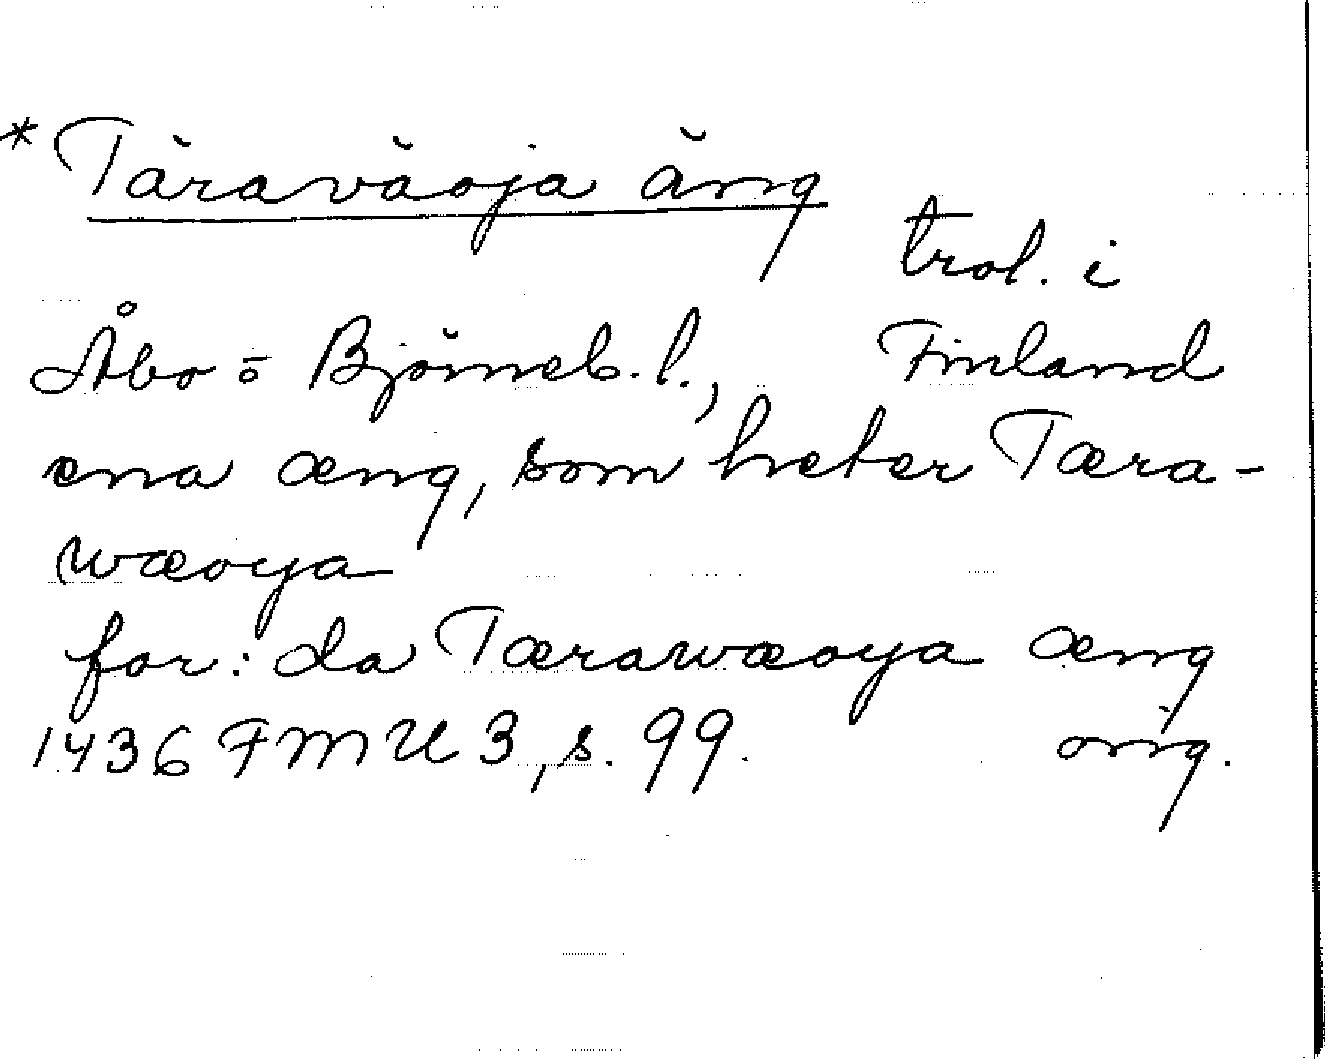 * Täraväoja äng
trol. i
Åbo = Björneb. l., Finland
ena æng, som heter Tæra-
wæoya
for: da Tærawæoya æng
1436 FMU 3, s. 99. orig.